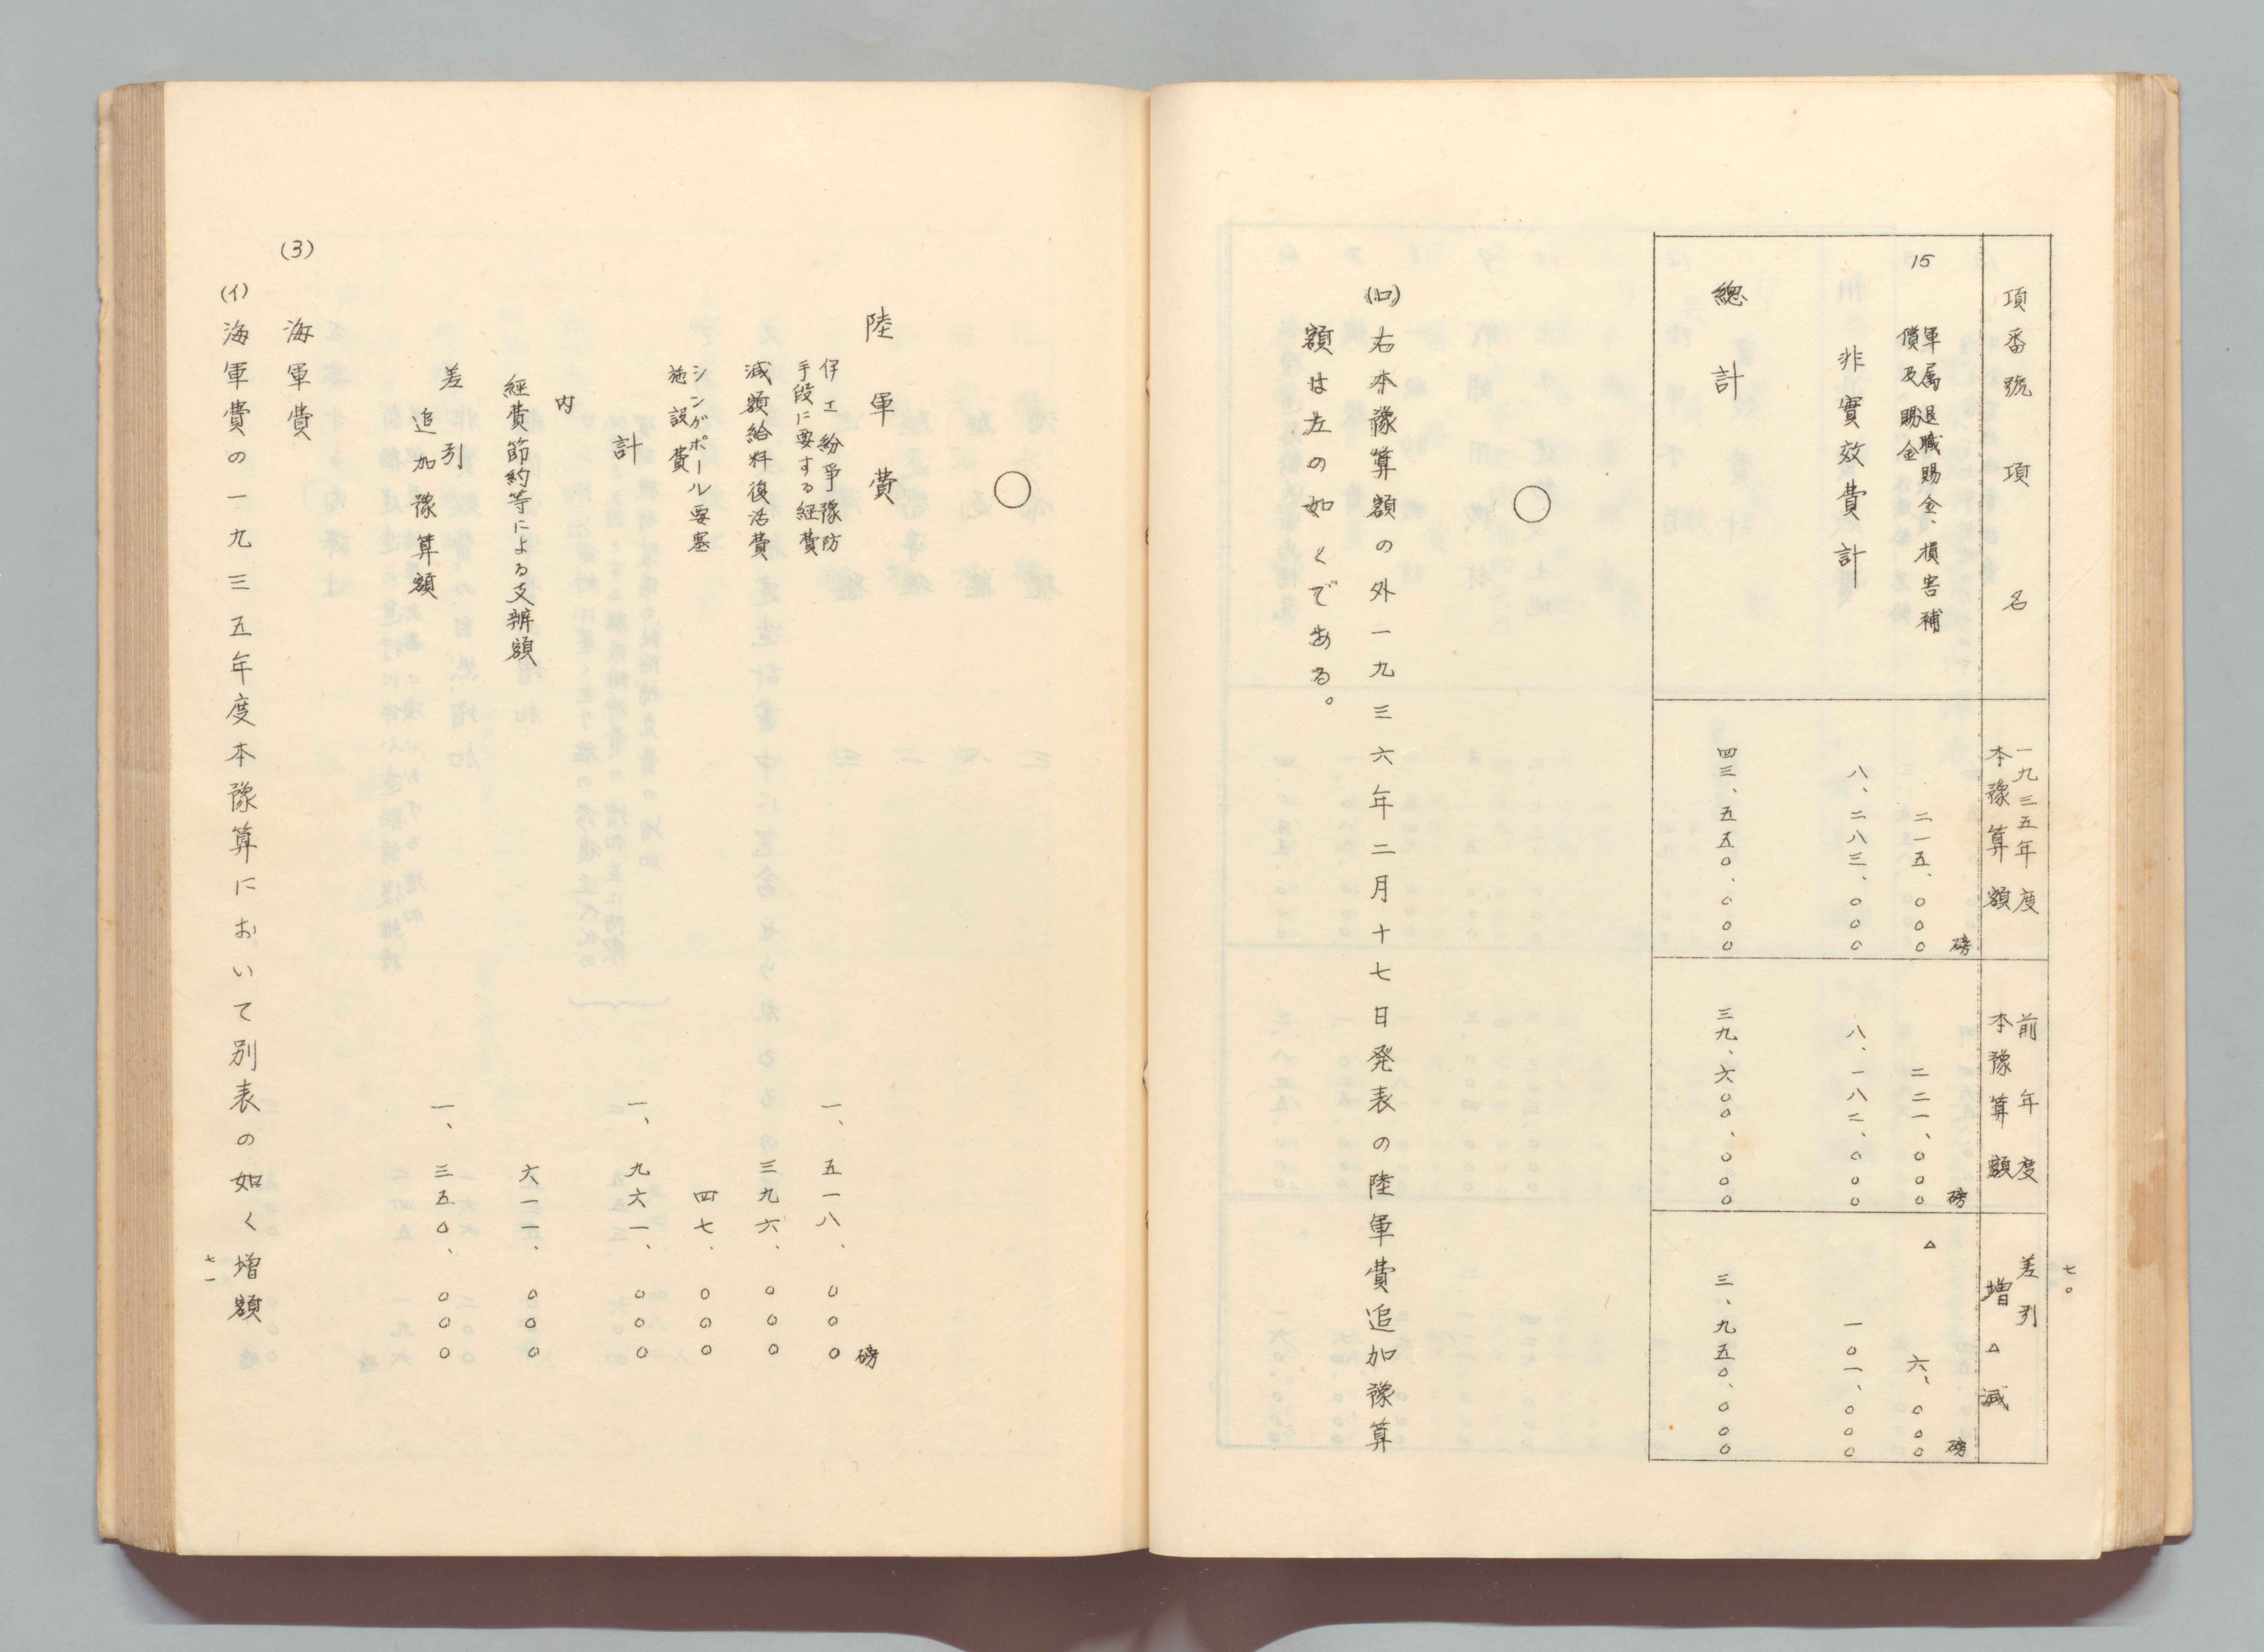 七〇
項番號項名
一九三五年度
本豫算額
前年度
本豫算額
差引
增△減
磅
磅
磅
15
軍属退職賜金、損害補
償及賜金
二一五、〇〇〇
二二一、〇〇〇
△六、〇〇〇
非實效費計
八、二八三、〇〇〇
八、一八二、〇〇〇
一〇一、〇〇〇
總計
四三、五五〇、〇〇〇
三九、六〇〇、〇〇〇
三、九五〇、〇〇〇
○
(ロ)右本豫算額の外一九三六年二月十七日発表の陸軍費追加豫算
額は左の如くである。
○
陸軍費
磅
伊エ紛爭豫防
手段に要する経費
一、五一八、〇〇〇
減額給料復活費
三九六、〇〇〇
シンガポール要塞
施設費
四七、〇〇〇
計
一、九六一、〇〇〇
内
經費節約等による支辨額
六一一、〇〇〇
差引
追加豫算額
一、三五〇、〇〇〇
(3)海軍費
(イ)海軍費の一九三五年度本豫算において別表の如く增額
七一